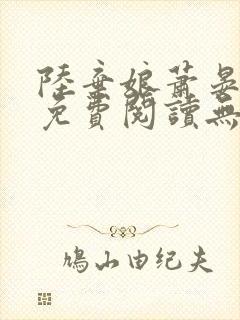 陸棄娘蕭晏
免費閱讀無
鳩山由纪夫